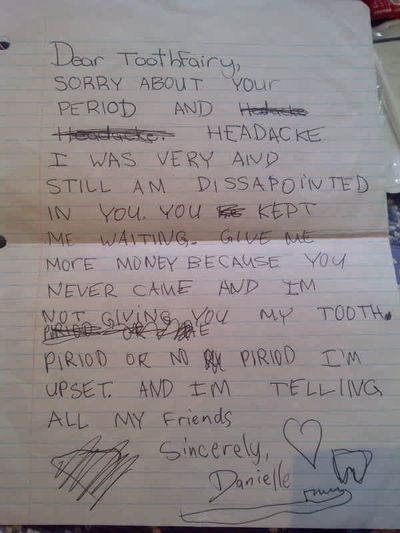 Dear Toothfairy,
SORRY ABOUT YOUr
PERIOD AND Hedacke
Headacke. HEADACKE
I WAS VERY AND
STILL AM DISSAPOINTED
IN YOU. YOU KEPT
ME WAITING. GIVE ME
MORE MONEY BECAUSE YOU
NEVER CAME AND IM
NOT GIVING YOU MY TOOTH.
PIRIOD OR
PIRIOD OR NO PIRIOD I'M
UPSET. AND IM TELLING
ALL MY Friends
Sincerely,
Danielle